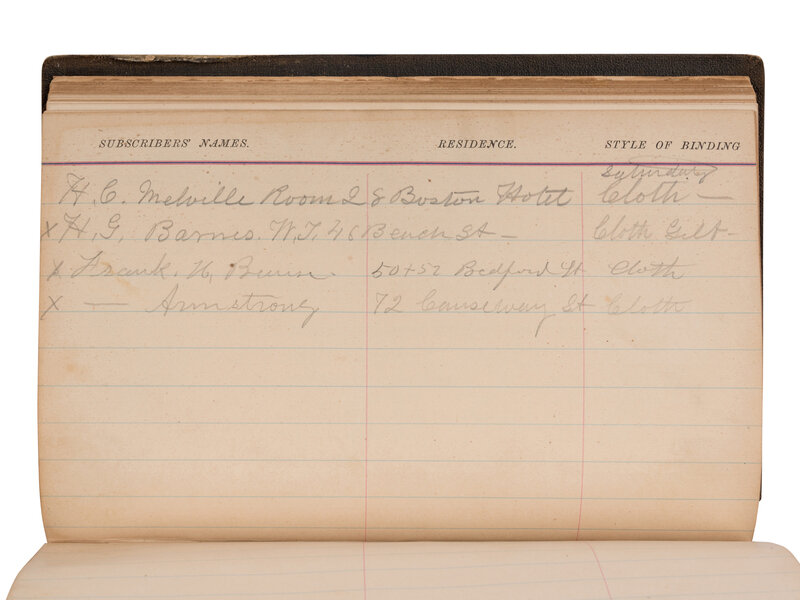 SUBSCRIBERS' NAMES. RESIDENCE. STYLE OF BINDING
Saturday
H. C. Melville Room 28 Boston Hotel Cloth —
x H. G. Barnes. W. T. 46 Beach St — Cloth Gilt —
x Frank. H. 50 + 52 Bedford St Cloth
x — Armstrong 72 Causeway St Cloth